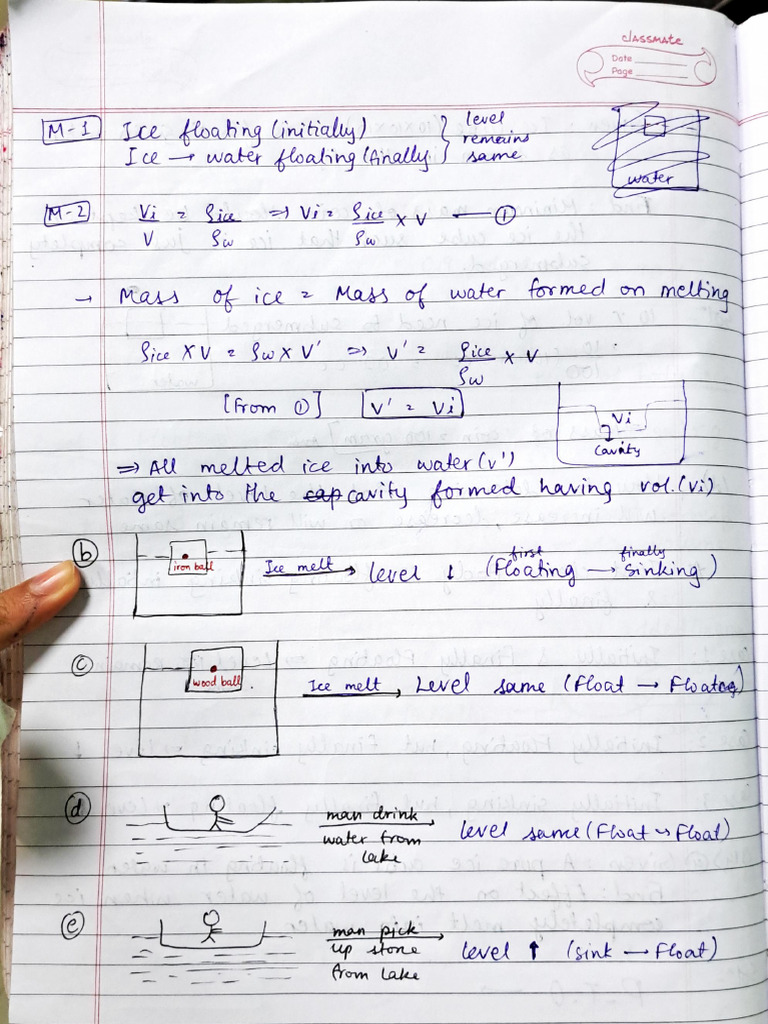 classmate
Date
Page
M-1 Ice floating (initially) } level
Ice → water floating (finally) remains
same
water
M-2 Vi/V = ρice/ρw ⇒ Vi = ρice/ρw × V — ①
→ Mass of ice = Mass of water formed on melting
ρice × V = ρw × V' ⇒ V' = ρice/ρw × V
[From ①] V' = Vi
Vi
cavity
⇒ All melted ice into water (v')
get into the cavity formed having vol. (Vi)
ⓑ iron ball Ice melt → level ↓ (first Floating → finally Sinking)
ⓒ wood ball Ice melt → Level same (Float → Floating)
ⓓ man drink → level same (Float → Float)
water from
lake
ⓔ man pick → level ↑ (sink → Float)
up stone
from lake